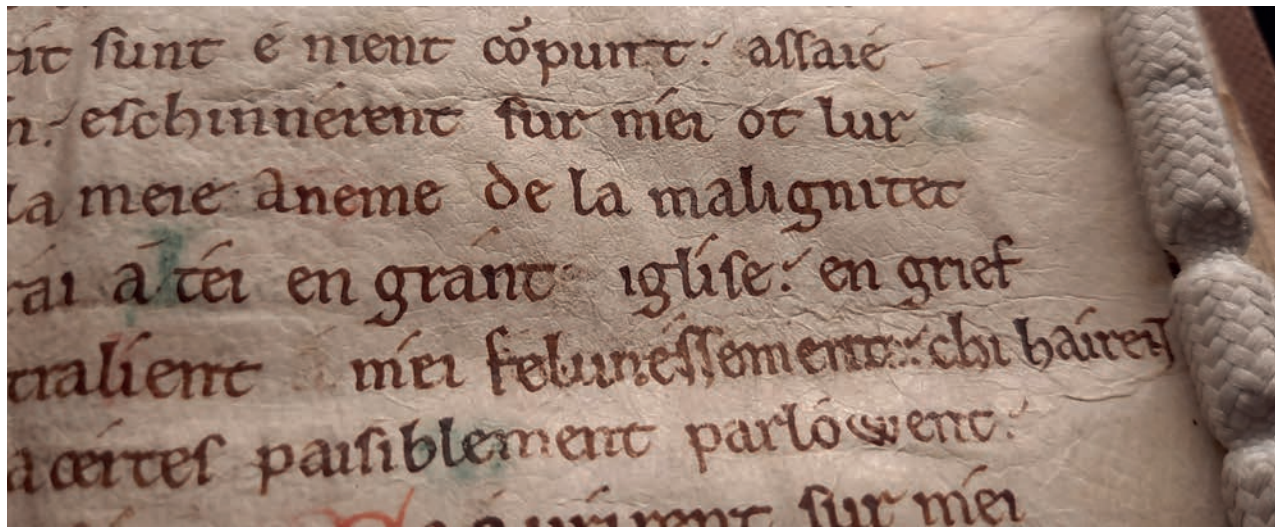 sunt e nient cōpunt: assaié
eschinnérent sur méi ot lur
la meie aneme de la malignitet
rai á téi en gránt iglíse: en grief
tralíent méi felunessement: chi háirent
acértes paisiblement parlówent:
sur méi